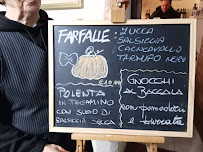 FARFALLE: ZUCCA
SALSICCIA
CACIOCAVALLO
TARTUFO NERO
POLENTA
IN TEGAMINO
CON SUGO DI
SALSICCIA SECCA
GNOCCHI
AL
CON POMODORI
E